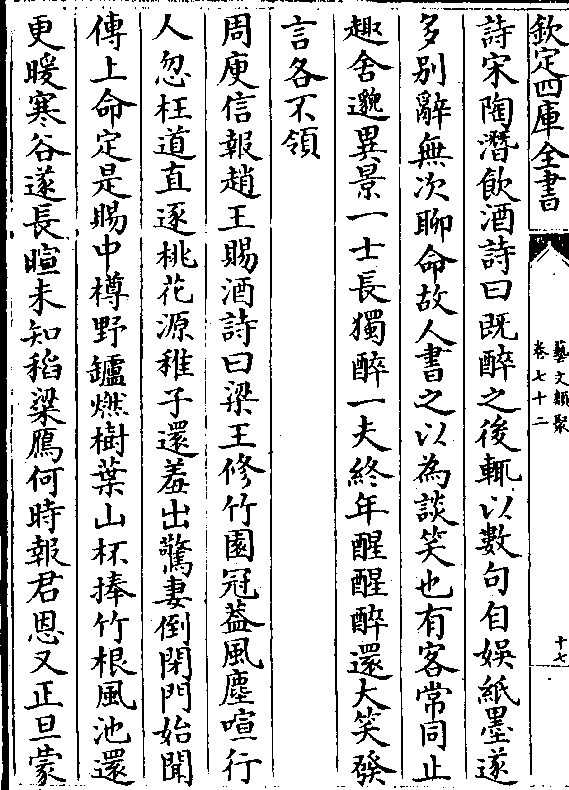 欽定四庫全書
藝文類聚
卷七十二
十七
詩宋陶潛飲酒詩曰既醉之後輒以數句自娛紙墨遂
多别辭無次聊命故人書之以為談笑也有客常同止
趣舍邈異景一士長獨醉一夫終年醒醒醉還大笑發
言各不領
周庾信報趙王賜酒詩曰梁王修竹園冠葢風塵喧行
人忽枉道直逐桃花源稚子還羞出驚妻倒閉門始聞
傳上命定是賜中樽野鑪燃樹葉山杯捧竹根風池還
更暖寒谷遂長暄未知稻粱鴈何時報君恩又正旦蒙